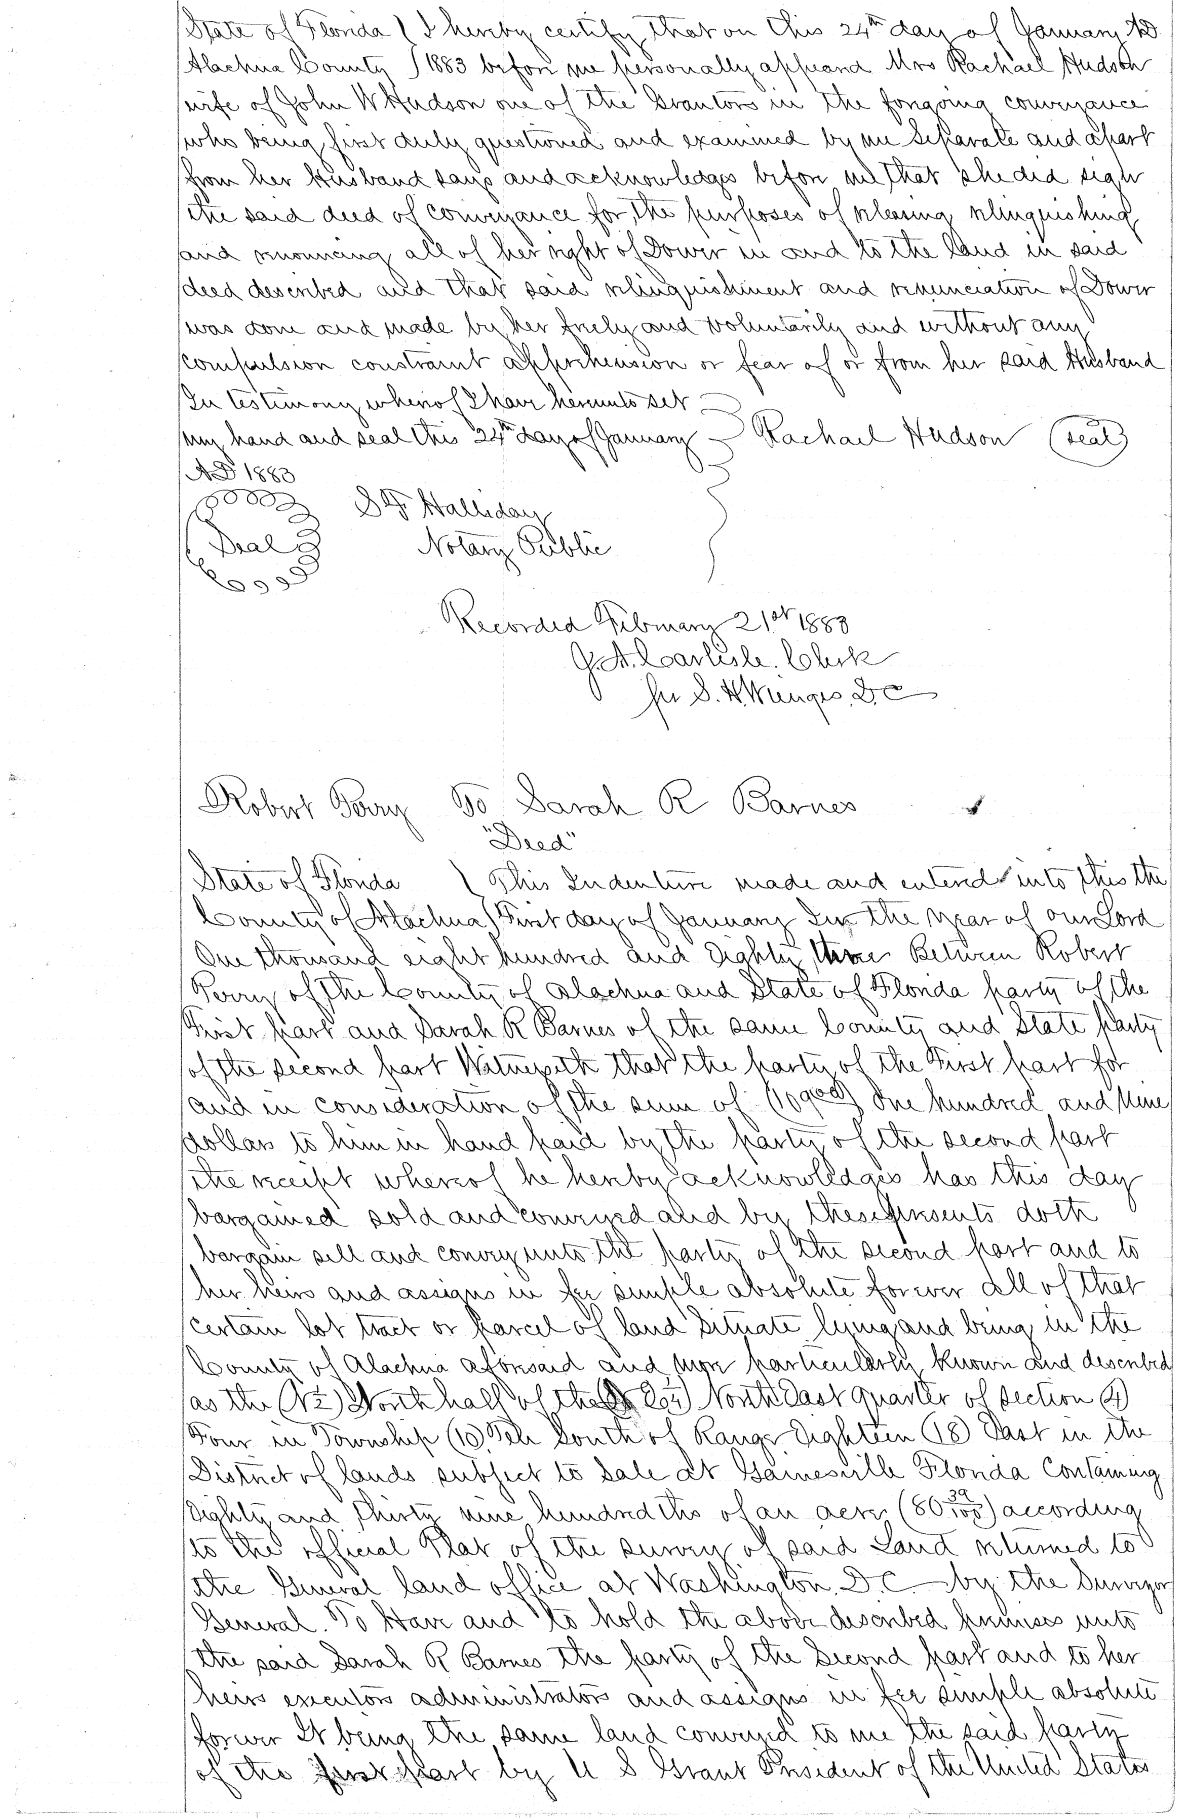 State of Florida ) I hereby certify that on this 24th day of January AD
Alachua County ) 1883 before me personally appeard Mrs Rachael Hudson
wife of John W Hudson one of the Grantors in the forgoing conveyance
who being first duly questioned and examined by me Separate and apart
from her Husband says and acknowledges before me that she did sign
the said deed of conveyance for the purposes of releasing relinquishing
and renouncing all of her right of Dower in and to the land in said
deed described and that said relinquishment and renunciation of Dower
was done and made by her freely and voluntarily and without any
compulsion constraint apprehension or fear of or from her said Husband
In testimony whereof I have hereunto set
my hand and seal this 24th day of January Rachael Hudson (seal)
AD 1883
S F Halliday
Seal Notary Public
Recorded February 21st 1883
J. A. Carlisle. Clerk
per S. H. Wienges, D C
Robert Perry To Sarah R Barnes
"Deed"
State of Florida ) This Indenture made and entered into this the
County of Alachua ) First day of January In the year of our Lord
One thousand eight hundred and Eighty three Between Robert
Perry of the County of Alachua and State of Florida party of the
First part and Sarah R Barnes of the same County and State party
of the second part Witnesseth that the party of the First part for
and in consideration of the sum of (109.00) One hundred and Nine
dollars to him in hand paid by the party of the second part
the receipt whereof he hereby acknowledges has this day
bargained sold and conveyed and by these presents doth
bargain sell and convey unto the party of the second part and to
her heirs and assigns in fee simple absolute forever all of that
certain lot tract or parcel of land Situate lying and being in the
County of Alachua aforesaid and more particularly known and described
as the (N½) North half of the North East quarter of section (4)
Four in Township (10) Ten South of Range Eighteen (18) East in the
District of lands subject to Sale at Gainesville Florida Containing
Eighty and thirty nine hundredths of an acre (80 39/100) according
to the official Plat of the survey of said Land returned to
the General land office at Washington, D.C. by the Surveyor
General. To Have and to hold the above described premises unto
the said Sarah R Barnes the party of the Second part and to her
heirs executors administrators and assigns in fee simple absolute
forever It being the same land conveyed to me the said party
of the first part by U S Grant President of the United States